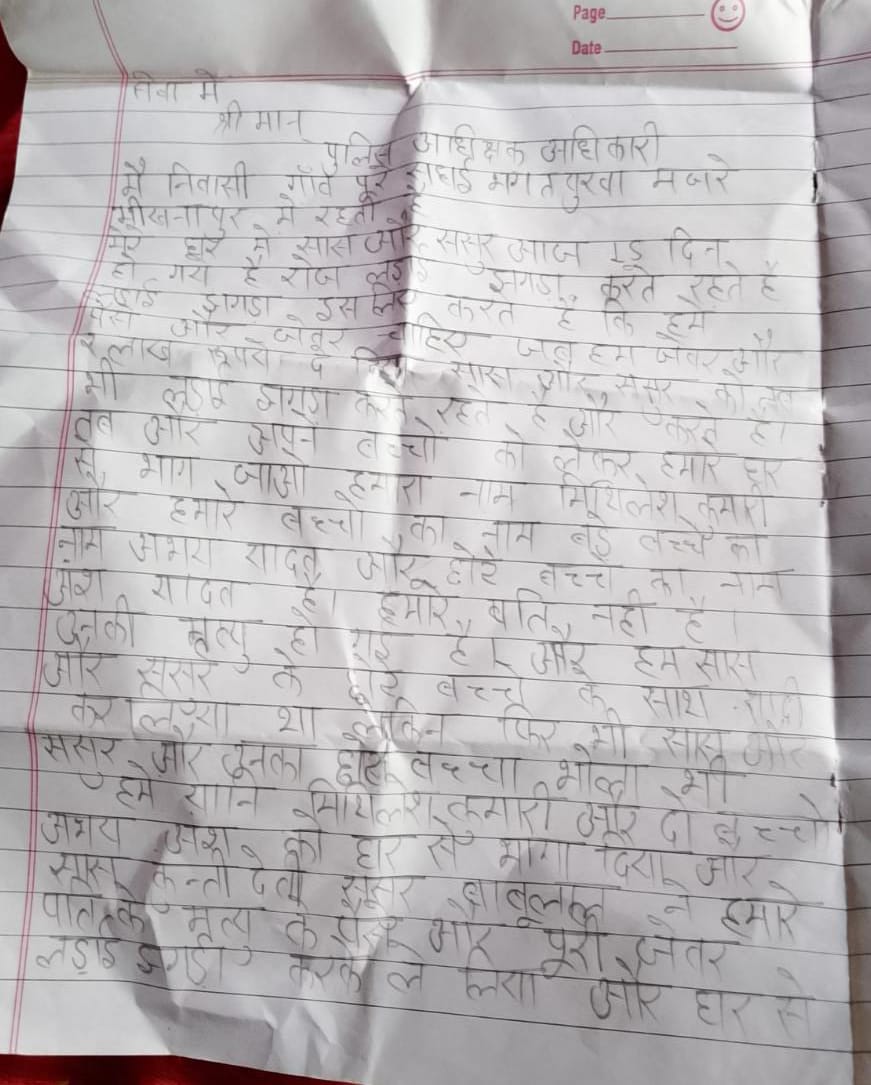 Page
Date
सेवा में
श्री मान
पुलिस अधिक्षक अधिकारी
मै निवासी गाँव पुरे भगत पुरवा मजरे
भीखनापुर मे रहती
मेरे घर मे सास और ससुर आज 15 दिन
हो गया है रोज लड़ाई झगड़ा करते रहते है
लड़ाई झगड़ा इस लिए करते है कि हम
पैसा और जेवर चाहिए जब हम जेवर और
लाख रूपये दे दिए सास और ससुर को तब
भी लड़ाई झगड़ा करते रहते है और कहते है।
तब और अपने बच्चो को लेकर हमारे घर
से भाग जाओ हमारा नाम मिथिलेश कुमारी
और हमारे बच्चो का नाम बड़े बच्चे का
नाम अभय यादव और छोटे बच्चे का नाम
अंश यादव है। हमारे पति नही है।
उनकी मृत्यु हो गई है। और हम सास
और ससुर के छोटे बच्चे के साथ शादी
कर लिया था लेकिन फिर भी सास और
ससुर और उनका छोटा बच्चा भोला भी
हमे यानि मिथिलेश कुमारी और दो बच्चो
अभय अंश को घर से भागा दिया और
सास कुन्ती देवी ससुर बाबूलाल ने हमारे
पति के मृत्यु के और पूरी जेवर
लड़ाई झगड़ा करके ले लिया और घर से